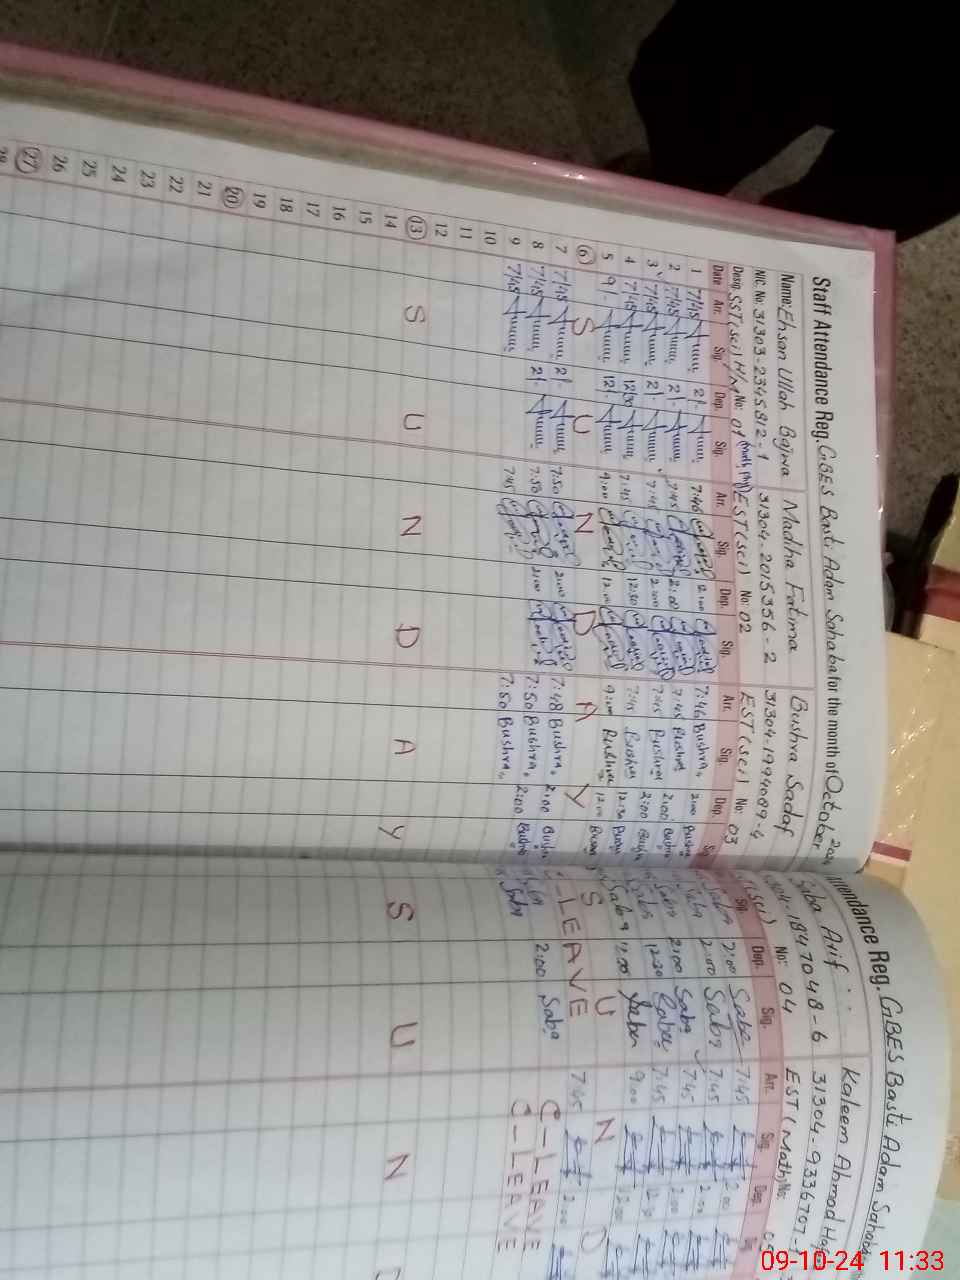 Staff Attendance Reg. GBES Basti Adam Sahaba for the month of October 2024
Name: Ehsan Ullah Bajwa Madha Fatima Bushra Sadaf
NIC. No: 31303-2345812-1 31304-2015356-2 31304-1994089-4
Desig. SST (Sci) H/M No: 01 EST (Sci) No: 02 EST (Sci) No: 03
Date Arr. Sig. Dep. Sig. Arr. Sig. Dep. Sig. Arr. Sig. Dep.
1 7/45 2/- 7:46 2:00 7:46 Bushra 2:00 Bushra
2 7/45 2/- 7:45 2:00 7:45 Bushra 2:00 Bushra
3 7/45 2/- 7:45 2:00 7:45 Bushra 2:00 Bushra
4 7/45 12/30 7:45 12:30 7:45 Bushra 12:30 Bushra
5 9/- 12/- 9:00 12:00 9:00 Bushra 12:00 Bushra
6 S U N D A Y
7 7/45 2/- 7:50 2:00 7:48 Bushra 2:00 Bushra
8 7/45 2/- 7:50 2:00 7:50 Bushra 2:00 Bushra
9 7/45 7:45 7:50 Bushra
10
11
12
13 S U N D A Y
14
15
16
17
18
19
20
21
22
23
24
25
26
27
28
Attendance Reg. GBES Basti Adam Sahaba
Saba Arif Kaleem Ahmad
1847048-6 31304-9336707-
(Sci) No: 04 EST (Math) No:
Sig. Dep. Sig. Arr. Sig. Dep.
Saba 2:00 Saba 7:45 2:00
Saba 2:00 Saba 7:45 2:00
Saba 2:00 Saba 7:45 2:00
Saba 12:30 Saba 7:45 12:30
Saba 12:00 Saba 9:00 12:00
S U N D
LEAVE 7:45 2:00
Saba 2:00 Saba C-LEAVE
Saba C-LEAVE
S U N D
09-10-24 11:33